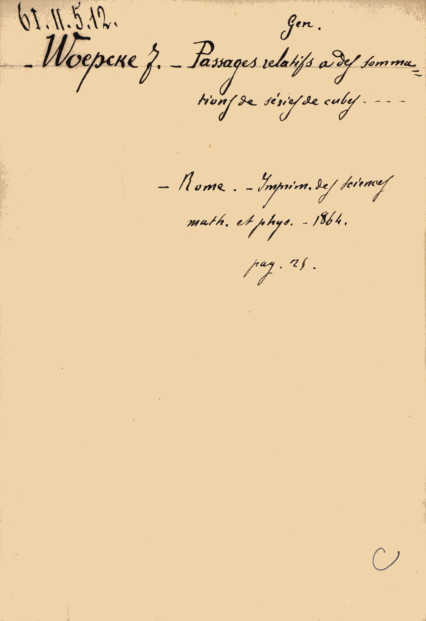 61.II.5.12.
Gen.
- Woepcke F. - Passages relatifs a des somma=
tions de séries de cubes ----
- Rome. - Imprim. des sciences
math. et phys. - 1864.
pag. 25.
C